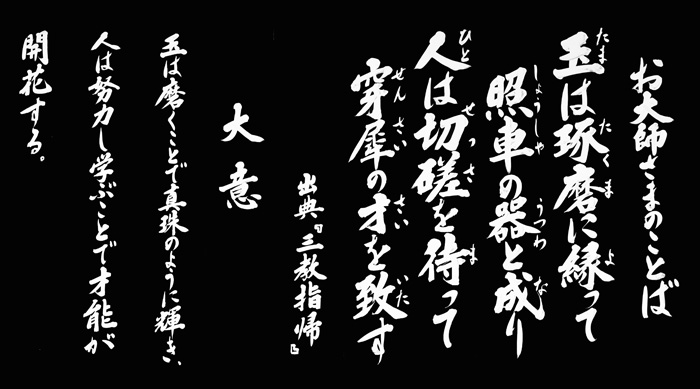 お大師さまのことば
玉は琢磨に縁って
照車の器と成り
人は切磋を待って
穿犀の才を致す
出典『三教指帰』
大意
玉は磨くことで真珠のように輝き、
人は努力し学ぶことで才能が
開花する。